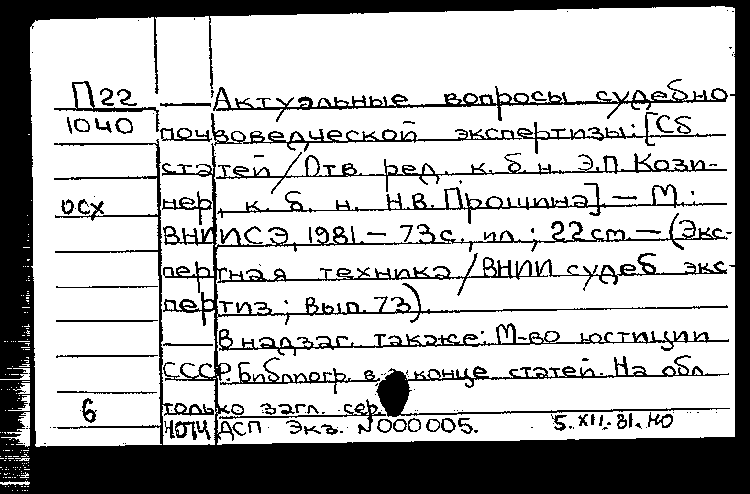 П22
1040
осх
6
Актуальные вопросы судебно-
почвоведческой экспертизы: [Сб.
статей / Отв. ред. к. б. н. Э.П. Кози-
нер, к. б. н. Н.В. Прошина]. — М.:
ВНИИСЭ, 1981. — 73 с., ил.; 22 см. — (Экс-
пертная техника / ВНИИ судеб. экс-
пертиз; Вып. 73).
В надзаг. также: М-во юстиции
СССР. Библиогр. в конце статей. На обл.
только загл. сер.
ДСП Экз. N 000005.
5.XII.81. НО